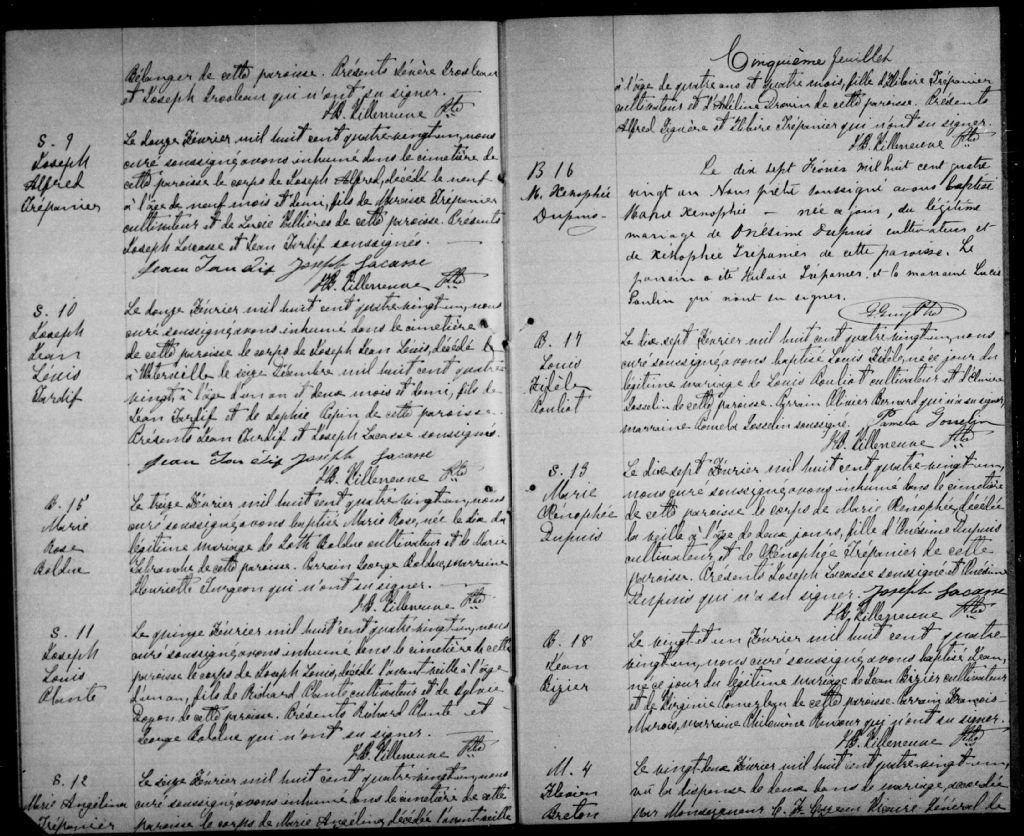 Bélanger de cette paroisse. Présents Sévère Drouleau
et Joseph Drouleau qui n'ont su signer.
J.B. Villeneuve Ptre
S. 9
Joseph
Alfred
Trépanier
Le douze Février mil huit cent quatre-vingt-un, nous
curé soussigné, avons inhumé dans le cimetière de
cette paroisse le corps de Joseph Alfred, décédé le neuf
à l'âge de neuf mois et demi, fils de Trépanier
cultivateur et de Lucie Vallières de cette paroisse. Présents
Joseph Lacasse et Jean Turdif soussignés.
Jean Tardif Joseph Lacasse
J.B. Villeneuve Ptre
S. 10
Joseph
Jean
Louis
Tardif
Le douze Février mil huit cent quatre-vingt-un, nous
curé soussigné, avons inhumé dans le cimetière
de cette paroisse le corps de Joseph Jean Louis, décédé
à Waterville le seize Décembre mil huit cent quatre-
vingt à l'âge d'un an et deux mois et demi, fils de
Jean Turdif et de Sophie Pepin de cette paroisse.
Présents Jean Turdif et Joseph Lacasse soussignés.
Jean Tardif Joseph Lacasse
J.B. Villeneuve Ptre
B. 15
Marie
Rose
Bolduc
Le treize Février mil huit cent quatre-vingt-un, nous
curé soussigné, avons baptisé Marie Rose, née le dix du
légitime mariage de Loth Bolduc cultivateur et de Marie
Labranche de cette paroisse. Parrain George Bolduc, marraine
Henriette Turgeon qui n'ont su signer.
J.B. Villeneuve Ptre
S. 11
Joseph
Louis
Plante
Le quinze Février mil huit cent quatre-vingt-un, nous
curé soussigné, avons inhumé dans le cimetière de cette
paroisse le corps de Joseph Louis, décédé l'avant-veille à l'âge
d'un an, fils de Richard Plante cultivateur et de Sylvie
Doyon de cette paroisse. Présents Richard Plante et
George Bolduc qui n'ont su signer.
J.B. Villeneuve Ptre
S. 12
Marie Angélina
Trépanier
Le seize Février mil huit cent quatre-vingt-un, nous
curé soussigné, avons inhumé dans le cimetière de cette
paroisse le corps de Marie Angélina, décédée l'avant-veille
Cinquième feuillet
à l'âge de quatre ans et quatre mois, fille d'Hilaire Trépanier
cultivateur et d'Adeline Drouin de cette paroisse. Présents
Alfred Giguère et Hilaire Trépanier qui n'ont su signer.
J.B. Villeneuve Ptre
B 16
M. Xénophée
Dupuis
Le dix sept Février mil huit cent quatre
vingt un Nous prêtre soussigné avons baptisé
Marie Xénophée — née ce jour, du légitime
mariage de Onésime Dupuis cultivateur et
de Xénophée Trépanier de cette paroisse. Le
parrain a été Hilaire Trépanier, et la marraine Lucie
Poulin qui n'ont su signer.
B. 17
Louis
Fidèle
Pouliot
Le dix-sept Février mil huit cent quatre-vingt-un, nous
curé soussigné, avons baptisé Louis Fidèle, né ce jour du
légitime mariage de Louis Pouliot cultivateur et d'Elmire
Gosselin de cette paroisse. Parrain Olivier Bernard qui n'a su signer,
marraine Pamela Gosselin soussignée. Pamela Gosselin
J.B. Villeneuve Ptre
S. 13
Marie
Xénophée
Dupuis
Le dix-sept Février mil huit cent quatre-vingt-un,
nous curé soussigné, avons inhumé dans le cimetière
de cette paroisse le corps de Marie Xénophée, décédée
la veille à l'âge de deux jours, fille d'Onésime Dupuis
cultivateur et de Xénophée Trépanier de cette
paroisse. Présents Joseph Lacasse soussigné et Onésime
Dupuis qui n'a su signer. Joseph Lacasse
J.B. Villeneuve Ptre
B. 18
Jean
Bizier
Le vingt et un Février mil huit cent quatre-
vingt-un, nous curé soussigné, avons baptisé Jean,
né ce jour du légitime mariage de Jean Bizier cultivateur
et de Virginie de cette paroisse. Parrain François
Marois, marraine Philomène qui n'ont su signer.
J.B. Villeneuve Ptre
M. 4
Breton
Le vingt-deux Février mil huit cent quatre-vingt-un,
vu la dispense de deux bans de mariage, accordée
par Monseigneur C. F. Vicaire Général de